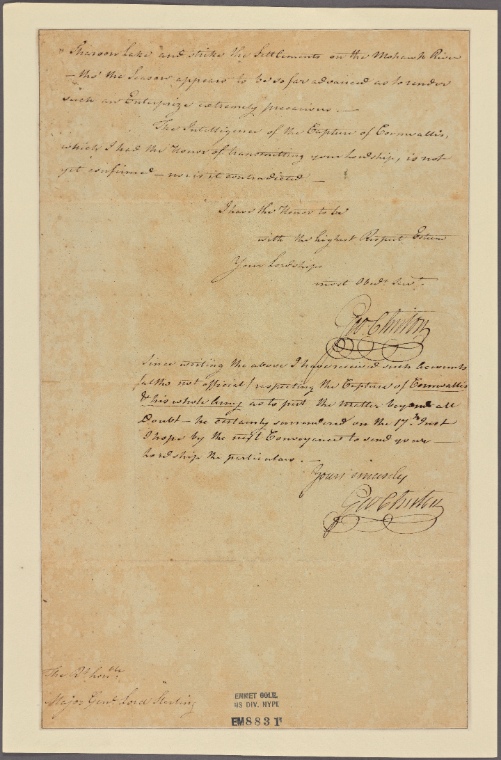 "Sharoon Lake" and strike the Settlements on the Mohawk River
— tho' the Season appears to be so far advanced as to render
such an Enterprize extremely precarious. —
The Intelligence of the Capture of Cornwallis,
which I had the Honor of transmitting your Lordship, is not
yet confirmed — nor is it contradicted —
I have the Honor to be
with the highest Respect Esteem
Your Lordships
most Obedt. Servt.
Geo Clinton
Since writing the above I have received such Accounts
(altho not official) respecting the Capture of Cornwallis
& his whole Army as to put the matter beyond all
Doubt — he certainly surrendered on the 17th. Inst
I hope by the next Conveyance to send your —
Lordship the particulars. —
Yours sincerely
Geo Clinton
The Rt. honble.
Major Genl. Lord Sterling
EMMET COLL.
MS DIV. NYPL
EM8831